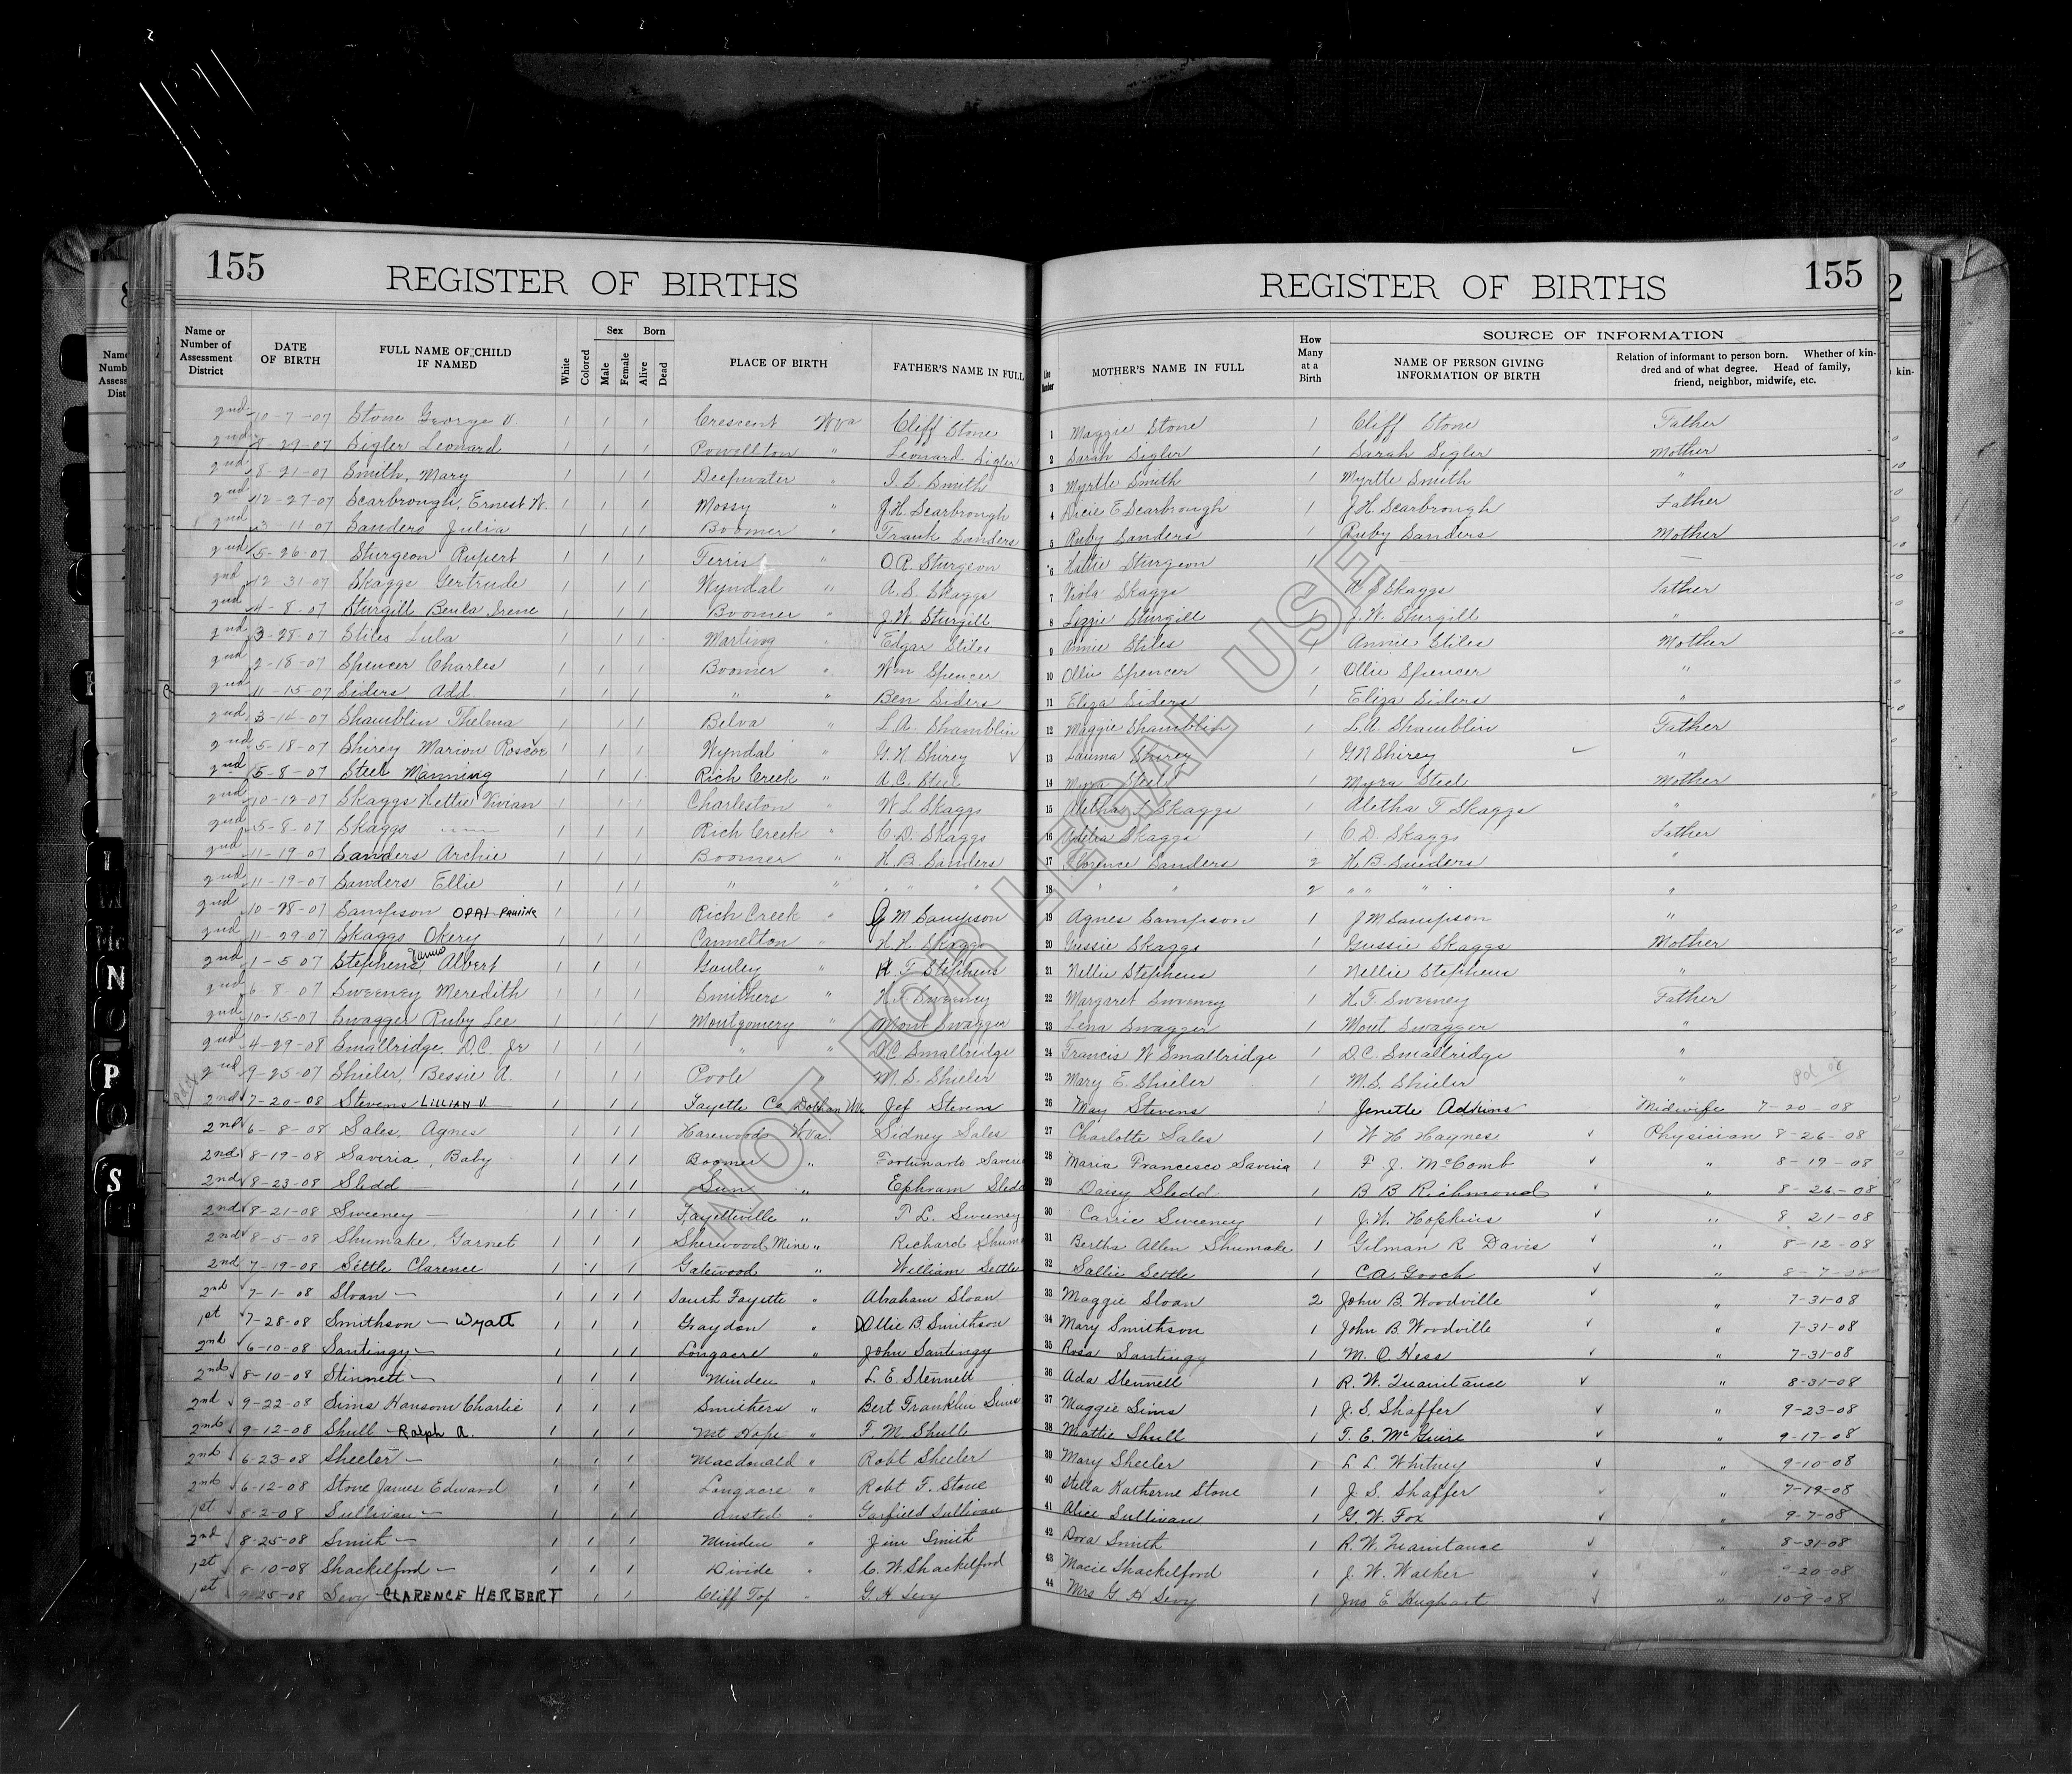 155 REGISTER OF BIRTHS
REGISTER OF BIRTHS 155
Name or Number of Assessment District DATE OF BIRTH FULL NAME OF CHILD IF NAMED White Colored Sex Male Female Born Alive Dead PLACE OF BIRTH FATHER'S NAME IN FULL
Line Number MOTHER'S NAME IN FULL How Many at a Birth SOURCE OF INFORMATION NAME OF PERSON GIVING INFORMATION OF BIRTH Relation of informant to person born. Whether of kindred and of what degree. Head of family, friend, neighbor, midwife, etc.
2nd 10-7-07 Stone George V. 1 1 1 Crescent W Va Cliff Stone 1 Maggie Stone 1 Cliff Stone Father
2nd 8-29-07 Sigler Leonard 1 1 1 Powellton " Leonard Sigler 2 Sarah Sigler 1 Sarah Sigler Mother
2nd 8-21-07 Smith, Mary 1 1 1 Deepwater " I. E. Smith 3 Myrtle Smith 1 Myrtle Smith "
2nd 12-27-07 Scarbrough, Ernest W. 1 1 1 Mossy " J.H. Scarbrough 4 E Scarbrough 1 J.H. Scarbrough Father
2nd 3-11-07 Sanders Julia 1 1 1 Boomer " Frank Sanders 5 Ruby Sanders 1 Ruby Sanders Mother
2nd 5-26-07 Sturgeon Rupert 1 1 1 Ferris " O.R. Sturgeon 6 Hallie Sturgeon 1 —
2nd 12-31-07 Skaggs Gertrude 1 1 1 Wyndal " A.S. Skaggs 7 Viola Skaggs 1 A S Skaggs Father
2nd 4-8-07 Sturgill Beula Irene 1 1 1 Boomer " J.W. Sturgill 8 Lizzie Sturgill 1 J.W. Sturgill "
2nd 3-28-07 Stiles Lula 1 1 1 Marting " Edgar Stiles 9 Annie Stiles 1 Annie Stiles Mother
2nd 2-18-07 Spencer Charles 1 1 1 Boomer " Wm Spencer 10 Ollie Spencer 1 Ollie Spencer "
2nd 11-15-07 Siders, Add. 1 1 1 " " Ben Siders 11 Eliza Siders 1 Eliza Siders "
2nd 3-14-07 Shamblin Thelma 1 1 1 Belva " L.A. Shamblin 12 Maggie Shamblin 1 L.A. Shamblin Father
2nd 5-18-07 Shirey Marion Roscoe 1 1 1 Wyndal " G.N Shirey 13 Shirey 1 G N Shirey "
2nd 5-8-07 Steel Manning 1 1 1 Rich Creek " A.C. Steel 14 Myra Steel 1 Myra Steel Mother
2nd 10-12-07 Skaggs Hettie Vivian 1 1 1 Charleston " W L Skaggs 15 Aletha T. Skaggs 1 Aletha T Skaggs "
2nd 5-8-07 Skaggs 1 1 1 Rich Creek " C.D. Skaggs 16 Adelia Skaggs 1 C.D. Skaggs Father
2nd 11-19-07 Sanders Archie 1 1 1 Boomer " H.B. Sanders 17 Florence Sanders 2 H.B Sanders "
2nd 11-19-07 Sanders Ellie 1 1 1 " " " " " 18 " " 2 " " " "
2nd 10-28-07 Sampson OPAL Pauline 1 1 1 Rich Creek " J M Sampson 19 Agnes Sampson 1 J M Sampson "
2nd 11-29-07 Skaggs Okery 1 1 1 Cannelton " H.H. Skaggs 20 Gussie Skaggs 1 Gussie Skaggs Mother
2nd 1-5-07 Stephens, James Albert 1 1 1 Gauley " H. T Stephens 21 Nellie Stephens 1 Nellie Stephens "
2nd 6-8-07 Sweeney Meredith 1 1 1 Smithers " H.T Sweeney 22 Margaret Sweeney 1 H.T. Sweeney Father
2nd 10-15-07 Swagger Ruby Lee 1 1 1 Montgomery " Mont Swagger 23 Lena Swagger 1 Mont Swagger "
2nd 4-29-08 Smallridge, D.C. Jr 1 1 1 " " D.C. Smallridge 24 Francis W Smallridge 1 D.C. Smallridge "
2nd 9-25-07 Shieler, Bessie A. 1 1 1 Poole " M.S. Shieler 25 Mary E. Shieler 1 M.S. Shieler "
2nd 7-20-08 Stevens LILLIAN V. 1 1 1 Fayette Co Dothan WVa Jef Stevens 26 May Stevens 1 Jenette Adkins Midwife 7-20-08
2nd 6-8-08 Sales, Agnes 1 1 1 Harewood W.Va. Sidney Sales 27 Charlotte Sales 1 W H Hagnes Physician 8-26-08
2nd 8-19-08 Saveria, Baby 1 1 1 Boomer " Fortunarto 28 Maria Francesco Saviria 1 F. J. McComb " 8-19-08
2nd 8-23-08 Sledd — 1 1 1 Sun " Ephram Sledd 29 Daisy Sledd 1 B B Richmond " 8-26-08
2nd 8-21-08 Sweeney — 1 1 1 Fayetteville " P L. Sweeney 30 Carrie Sweeney 1 J.W. Hopkins " 8 21-08
2nd 8-5-08 Shumake, Garnet 1 1 1 Sherwood Mine " Richard Shum 31 Bertha Allen Shumake 1 Gilman R Davis " 8-12-08
2nd 7-19-08 Settle Clarence 1 1 1 Gatewood " William Settle 32 Sallie Settle 1 C.A. Gooch " 8-7-08
2nd 7-1-08 Sloan — 1 1 1 1 South Fayette " Abraham Sloan 33 Maggie Sloan 2 John B. Woodville " 7-31-08
1st 7-28-08 Smithson — Wyatt 1 1 1 Graydon " Ollie B. Smithson 34 Mary Smithson 1 John B. Woodville " 7-31-08
2nd 6-10-08 Santingy — 1 1 1 Longacre " John Santingy 35 Rosa Santingy 1 M. O. Hess " 7-31-08
2nd 8-10-08 Stinnett — 1 1 1 Minden " L. E. Stennett 36 Ada Stennett 1 R. W. Quaintance " 8-31-08
2nd 9-22-08 Sims Hansom Charlie 1 1 1 Smithers " Bert Franklin Sims 37 Maggie Sims 1 J. S. Shaffer " 9-23-08
2nd 9-12-08 Shull — Ralph A. 1 1 1 Mt Hope " F. M. Shull 38 Mattie Shull 1 T. E. McGuire " 9-17-08
2nd 6-23-08 Sheeler — 1 1 1 Macdonald " Robt Sheeler 39 Mary Sheeler 1 L L. Whitney " 9-10-08
2nd 6-12-08 Stone James Edward 1 1 1 Longacre " Robt F. Stone 40 Stella Katherne Stone 1 J. S. Shaffer " 7-19-08
1st 8-2-08 Sullivan — 1 1 1 Ansted " Garfield Sullivan 41 Alice Sullivan 1 G. W. Fox " 9-7-08
2nd 8-25-08 Smith — 1 1 1 Minden " Jim Smith 42 Dora Smith 1 R.W. Quaintance " 8-31-08
1st 8-10-08 Shackelford — 1 1 1 Divide " C. W. Shackelford 43 Macie Shackelford 1 J. W. Walker " 9-20-08
1st 9-25-08 Sevy - CLARENCE HERBERT 1 1 Cliff Top " G. H Sevy 44 Mrs G. H Sevy 1 Jno E Hughart " 10-9-08
NOT FOR LEGAL USE
Mc
N
O
P
Q
S
T